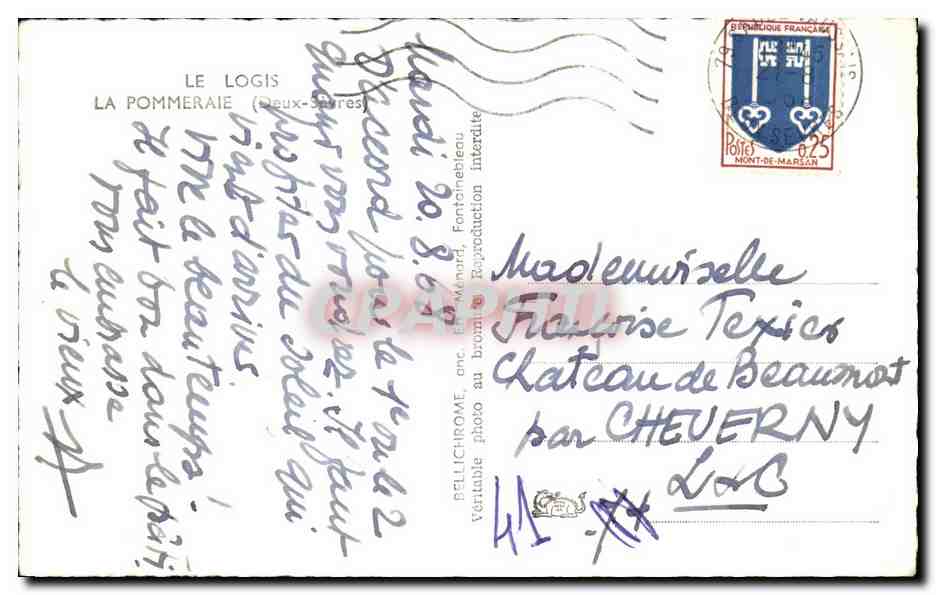 LE LOGIS
LA POMMERAIE (Deux-Sèvres)
20.8.68
D'accord pour le 1er ou le 2
quand vous voudrez. Il faut
profiter du soleil qui
vient d'arriver
Vive le beau temps!
Il fait bon dans le
vous embrasse
le vieux
BELLICHROME, anc. Ménard, Fontainebleau
Véritable photo au bromure Reproduction interdite
RÉPUBLIQUE FRANÇAISE
POSTES 0,25
MONT-DE-MARSAN
Mademoiselle
Françoise Texier
Chateau de Beaumont
par CHEVERNY
L&C
41
CPAPHIL